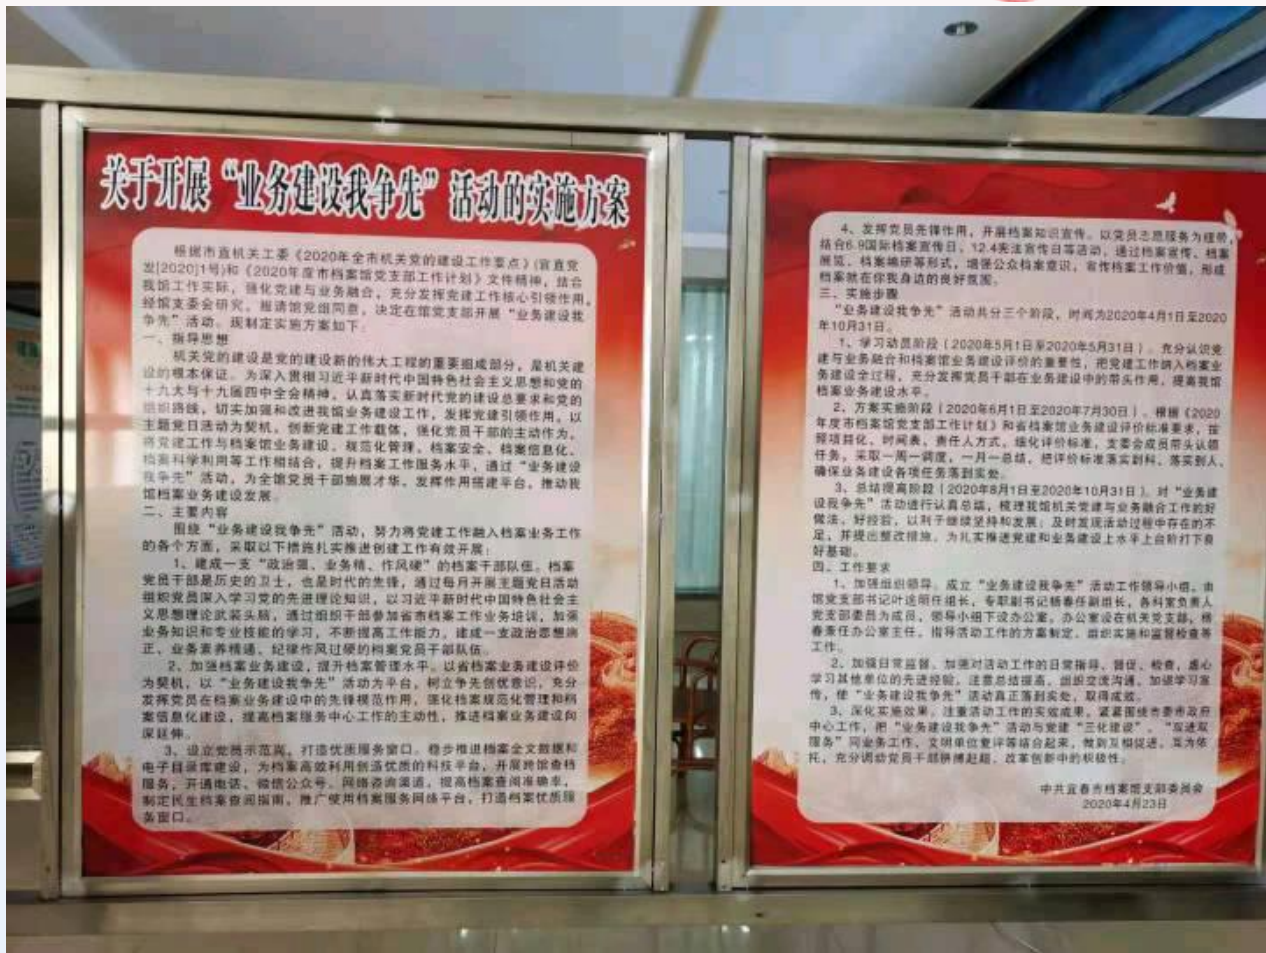 关于开展“业务建设我争先”活动的实施方案
根据市直机关工委《2020年全市机关党的建设工作要点》(宜直党
发[2020]1号)和《2020年度市档案馆党支部工作计划》文件精神，结合
我馆工作实际，强化党建与业务融合，充分发挥党建工作核心引领作用，
经馆支委会研究，报请馆党组同意，决定在馆党支部开展“业务建设我
争先”活动。现制定实施方案如下：
一、指导思想
机关党的建设是党的建设新的伟大工程的重要组成部分，是机关建
设的根本保证。为深入贯彻习近平新时代中国特色社会主义思想和党的
十九大与十九届四中全会精神，认真落实新时代党的建设总要求和党的
组织路线，切实加强和改进我馆业务建设工作，发挥党建引领作用，以
主题党日活动为契机，创新党建工作载体，强化党员干部的主动作为，
将党建工作与档案馆业务建设、规范化管理、档案安全、档案信息化、
档案科学利用等工作相结合，提升档案工作服务水平，通过“业务建设
我争先”活动，为全馆党员干部施展才华、发挥作用搭建平台，推动我
馆档案业务建设发展。
二、主要内容
围绕“业务建设我争先”活动，努力将党建工作融入档案业务工作
的各个方面，采取以下措施扎实推进创建工作有效开展：
1、建成一支“政治强、业务精、作风硬”的档案干部队伍。档案
党员干部是历史的卫士，也是时代的先锋，通过每月开展主题党日活动
组织党员深入学习党的先进理论知识，以习近平新时代中国特色社会主
义思想理论武装头脑，通过组织干部参加省市档案工作业务培训，加强
业务知识和专业技能的学习，不断提高工作能力，建成一支政治思想端
正、业务素养精通、纪律作风过硬的档案党员干部队伍。
2、加强档案业务建设，提升档案管理水平。以省档案业务建设评价
为契机，以“业务建设我争先”活动为平台，树立争先创优意识，充分
发挥党员在档案业务建设中的先锋模范作用，强化档案规范化管理和档
案信息化建设，提高档案服务中心工作的主动性，推进档案业务建设向
深延伸。
3、设立党员示范岗，打造优质服务窗口。稳步推进档案全文数据和
电子目录库建设，为档案高效利用创造优质的科技平台，开展跨馆查档
服务，开通电话、微信公众号、网络咨询渠道，提高档案查阅准确率，
制定民生档案查阅指南，推广使用档案服务网络平台，打造档案优质服
务窗口。
4、发挥党员先锋作用，开展档案知识宣传。以党员志愿服务为纽带，
结合6.9国际档案宣传日、12.4宪法宣传日等活动，通过档案宣传、档案
展览、档案编研等形式，增强公众档案意识，宣传档案工作价值，形成
档案就在你我身边的良好氛围。
三、实施步骤
“业务建设我争先”活动共分三个阶段，时间为2020年4月1日至2020
年10月31日。
1、学习动员阶段（2020年5月1日至2020年5月31日）。充分认识党
建与业务融合和档案馆业务建设评价的重要性，把党建工作纳入档案业
务建设全过程，充分发挥党员干部在业务建设中的带头作用，提高我馆
档案业务建设水平。
2、方案实施阶段（2020年6月1日至2020年7月30日）。根据《2020
年度市档案馆党支部工作计划》和省档案馆业务建设评价标准要求，按
照项目化、时间表、责任人方式，细化评价标准，支委会成员带头认领
任务，采取一周一调度，一月一总结，把评价标准落实到科、落实到人，
确保业务建设各项任务落到实处。
3、总结提高阶段（2020年8月1日至2020年10月31日）。对“业务建
设我争先”活动进行认真总结，梳理我馆机关党建与业务融合工作的好
做法，好经验，以利于继续坚持和发展；及时发现活动过程中存在的不
足，并提出整改措施，为扎实推进党建和业务建设上水平上台阶打下良
好基础。
四、工作要求
1、加强组织领导。成立“业务建设我争先”活动工作领导小组，由
馆党支部书记叶远明任组长，专职副书记杨春任副组长，各科室负责人
党支部委员为成员，领导小组下设办公室，办公室设在机关党支部，杨
春兼任办公室主任，指导活动工作的方案制定、组织实施和监督检查等
工作。
2、加强日常监督。加强对活动工作的日常指导、督促、检查，虚心
学习其他单位的先进经验，注意总结提高，组织交流沟通，加强学习宣
传，使“业务建设我争先”活动真正落到实处，取得成效。
3、深化实施效果。注重活动工作的实效成果，紧紧围绕市委市政府
中心工作，把“业务建设我争先”活动与党建“三化建设”、“双进双
服务”同业务工作、文明单位复评等结合起来，做到互相促进，互为依
托，充分调动党员干部拼搏赶超、改革创新中的积极性。
中共宜春市档案馆支部委员会
2020年4月23日